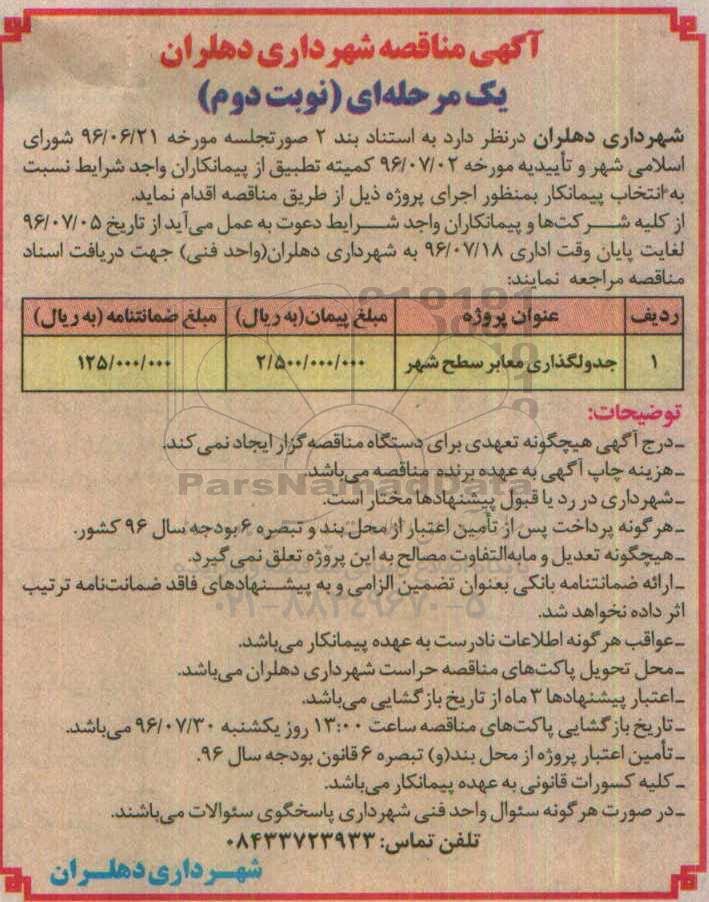 آگهی مناقصه شهرداری دهلران
یک مرحله‌ای (نوبت دوم)
شهرداری دهلران درنظر دارد به استناد بند ۲ صورتجلسه مورخه ۹۶/۰۶/۲۱ شورای
اسلامی شهر و تأییدیه مورخه ۹۶/۰۷/۰۲ کمیته تطبیق از پیمانکاران واجد شرایط نسبت
به انتخاب پیمانکار بمنظور اجرای پروژه ذیل از طریق مناقصه اقدام نماید.
از کلیه شرکت‌ها و پیمانکاران واجد شرایط دعوت به عمل می‌آید از تاریخ ۹۶/۰۷/۰۵
لغایت پایان وقت اداری ۹۶/۰۷/۱۸ به شهرداری دهلران(واحد فنی) جهت دریافت اسناد
مناقصه مراجعه نمایند:
ردیف عنوان پروژه مبلغ پیمان(به ریال) مبلغ ضمانتنامه (به ریال)
۱ جدولگذاری معابر سطح شهر ۲/۵۰۰/۰۰۰/۰۰۰ ۱۲۵/۰۰۰/۰۰۰
توضیحات:
ـ درج آگهی هیچگونه تعهدی برای دستگاه مناقصه گزار ایجاد نمی‌کند.
ـ هزینه چاپ آگهی به عهده برنده مناقصه می‌باشد.
ParsNamadData
ـ شهرداری در رد یا قبول پیشنهادها مختار است.
ـ هر گونه پرداخت پس از تأمین اعتبار از محل بند و تبصره ۶ بودجه سال ۹۶ کشور.
ـ هیچگونه تعدیل و مابه‌التفاوت مصالح به این پروژه تعلق نمی گیرد.
ـ ارائه ضمانتنامه بانکی بعنوان تضمین الزامی و به پیشنهادهای فاقد ضمانت‌نامه ترتیب
۰۲۱-۸۸۳۴۹۶۷۰-۵
اثر داده نخواهد شد.
ـ عواقب هر گونه اطلاعات نادرست به عهده پیمانکار می‌باشد.
ـ محل تحویل پاکت‌های مناقصه حراست شهرداری دهلران می‌باشد.
ـ اعتبار پیشنهادها ۳ ماه از تاریخ بازگشایی می‌باشد.
ـ تاریخ بازگشایی پاکت‌های مناقصه ساعت ۱۳:۰۰ روز یکشنبه ۹۶/۰۷/۳۰ می‌باشد.
ـ تأمین اعتبار پروژه از محل بند(و) تبصره ۶ قانون بودجه سال ۹۶.
ـ کلیه کسورات قانونی به عهده پیمانکار می‌باشد.
ـ در صورت هر گونه سئوال واحد فنی شهرداری پاسخگوی سئوالات می‌باشند.
تلفن تماس: ۰۸۴۳۳۷۲۳۹۳۳
شهرداری دهلران